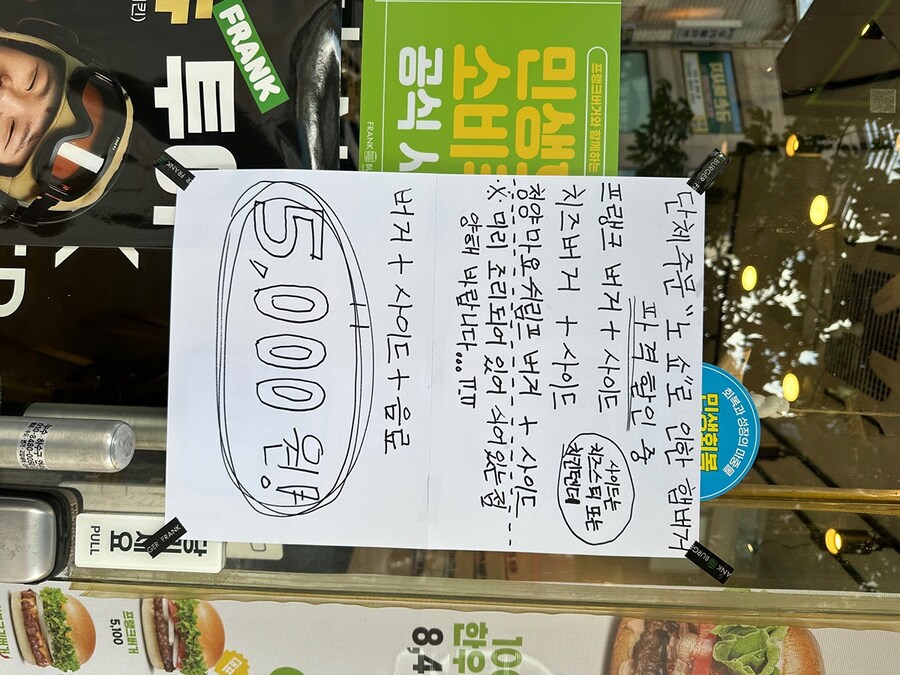 단체주문 "노쇼"로 인한 햄버거
파격할인 중
프랭크 버거 + 사이드
치즈버거 + 사이드
사이드는
치즈스틱 또는
치킨텐더
청양마요쉬림프 버거 + 사이드
※ 미리 조리되어 있어 사이 있는 점
양해 바랍니다... ㅠㅠ
버거 + 사이드 + 음료
5,000원!
FRANK
프랭크버거와 함께하는
민생
소비
공식
FRANK
회복과 성장의 마중물
민생회복
PULL
프랭크버거
5,100
100
한우
8,4